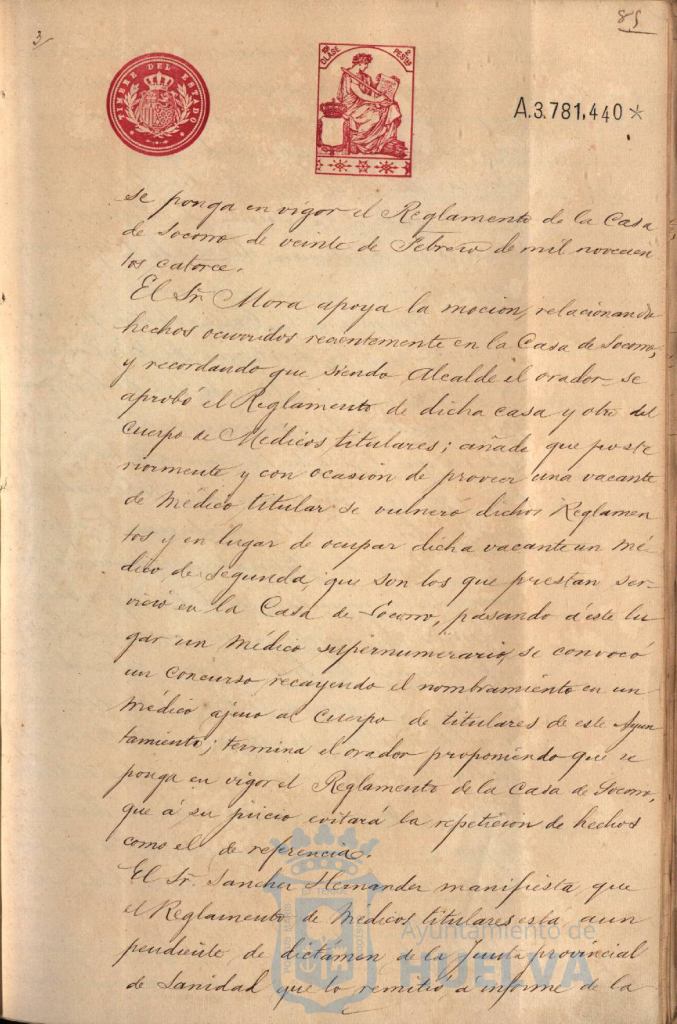 3
85
TIMBRE DEL ESTADO
8ª CLASE
2 PESTAS
A.3.781.440*
se ponga en vigor el Reglamento de la Casa
de Socorro de veinte de Febrero de mil novecien
tos catorce.
El Sr. Mora apoya la mocion, relacionando
hechos ocurridos recientemente en la Casa de Socorro,
y recordando que siendo Alcalde el orador se
aprobó el Reglamento de dicha casa y otro del
Cuerpo de Médicos titulares; añade que poste
riormente y con ocasion de proveer una vacante
de Médico titular se vulneró dichos Reglamen
tos y en lugar de ocupar dicha vacante un Mé-
dico de segunda, que son los que prestan ser-
vicio en la Casa de Socorro, pasando á este lu
gar un Médico supernumerario, se convocó
un Concurso recayendo el nombramiento en un
Médico ajeno al Cuerpo de titulares de este Ayun
tamiento; termina el orador proponiendo que se
ponga en vigor el Reglamento de la Casa de Socorro,
que á su juicio evitará la repeticion de hechos
como el de referencia.
El Sr. Sanchez Hernandez manifiesta, que
el Reglamento de Médicos titulares está aun
pendiente de dictamen de la Junta provincial
de Sanidad que lo remitió á informe de la
Ayuntamiento de
HUELVA